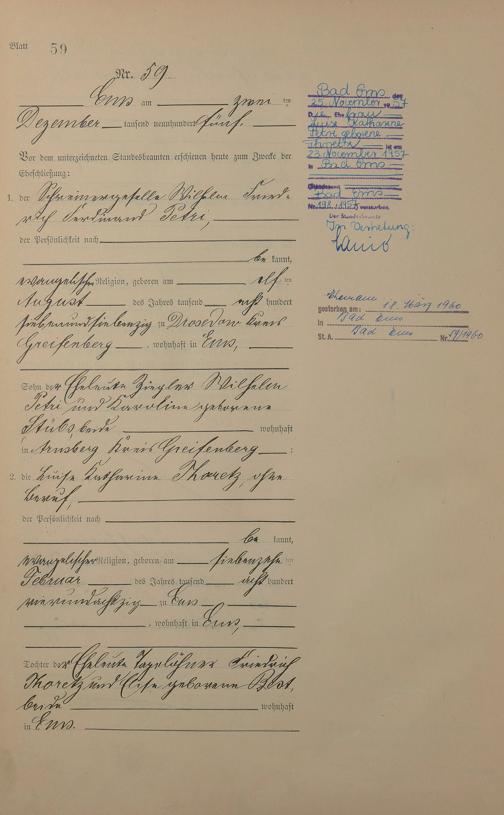 Blatt 59
Nr. 59
Ems am zwei ten
Dezember tausend neunhundert fünf.
Vor dem unterzeichneten Standesbeamten erschienen heute zum Zwecke der
Eheschließung:
1. der Schreinergeselle Wilhelm Fried-
rich Ferdinand Petri,
der Persönlichkeit nach
be kannt,
evangelischer Religion, geboren am elf ten
August des Jahres tausend acht hundert
siebenundsiebenzig zu Drosedow Kreis
Greifenberg, wohnhaft in Ems,
Sohn der Eheleute Ziegler Wilhelm
Petri und Karoline geborene
Stubs, beide wohnhaft
in Arnsberg Kreis Greifenberg;
2. die Luise Katharine Thoretz, ohne
Beruf,
der Persönlichkeit nach
be kannt,
evangelischer Religion, geboren am siebenzehn
Februar des Jahres tausend acht hundert
vierundachtzig zu Ems
, wohnhaft in Ems,
Tochter der Eheleute Tagelöhner Friedrich
Thoretz und Elise geborene Best,
beide wohnhaft
in Ems.
Bad Ems, den
25. November 1957
Die Ehefrau
Luise Katharine
Petri geborene
Thoretz ist am
23. November 1957
in Bad Ems
Bad Ems
Nr. 198/1957
Der Standesbeamte
In Vertretung:
Ehemann
gestorben am: 18. März 1960
in Bad Ems
St. A. Bad Ems Nr. 59/1960